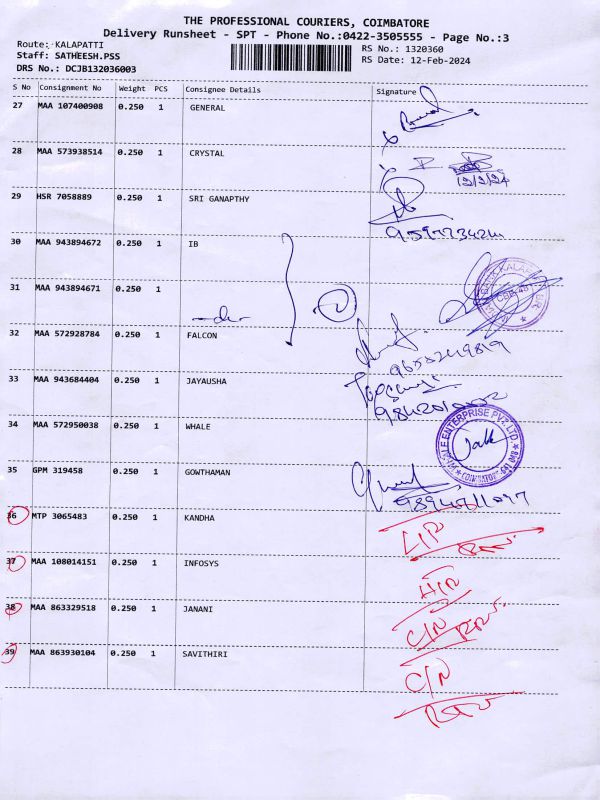 THE PROFESSIONAL COURIERS, COIMBATORE
Delivery Runsheet - SPT - Phone No.:0422-3505555 - Page No.:3
Route: KALAPATTI
RS No.: 1320360
Staff: SATHEESH.PSS
RS Date: 12-Feb-2024
DRS No.: DCJB132036003
S No Consignment No Weight PCS Consignee Details Signature
27 MAA 107400908 0.250 1 GENERAL
28 MAA 573938514 0.250 1 CRYSTAL
12/2/24
29 HSR 7058889 0.250 1 SRI GANAPTHY
30 MAA 943894672 0.250 1 IB
31 MAA 943894671 0.250 1
-do-
32 MAA 572928784 0.250 1 FALCON
33 MAA 943684404 0.250 1 JAYAUSHA
34 MAA 572950038 0.250 1 WHALE
35 GPM 319458 0.250 1 GOWTHAMAN
36 MTP 3065483 0.250 1 KANDHA
37 MAA 108014151 0.250 1 INFOSYS
38 MAA 863329518 0.250 1 JANANI
C/N
39 MAA 863930104 0.250 1 SAVITHIRI
C/N